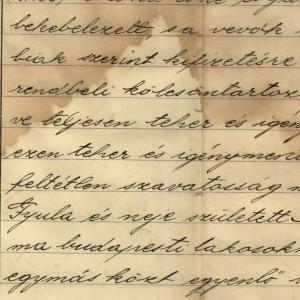 bekebelezett, s a vevők
biak szerint kifizetésre
rendbeli kölcsöntartoz
ve teljesen teher és igén
ezen teher és igénymen
feltétlen szavatosság
Gyula és neje született
ma budapesti lakosok
egymás közt egyenlő"